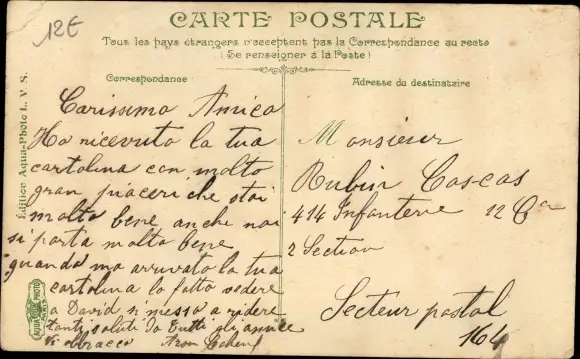 12€
CARTE POSTALE
Tous les pays étrangers n'acceptent pas la Correspondance au recto
(Se renseigner à la Poste)
Correspondance
Adresse du destinataire
Édition Aqua-Photo L. V. S.
Carissimo Amico
Ho ricevuto la tua
cartolina con molto
gran piaceri che stai
molto bene anche noi
si porta molto bene
quando ma arrivato la tua
cartolina lo fatto vedere
a David si messo a ridere
tanti saluti Io Tutti gli amice
Monsieur
Rubin
414 Infanterie 12 Cie
2 Section
Secteur postal
164